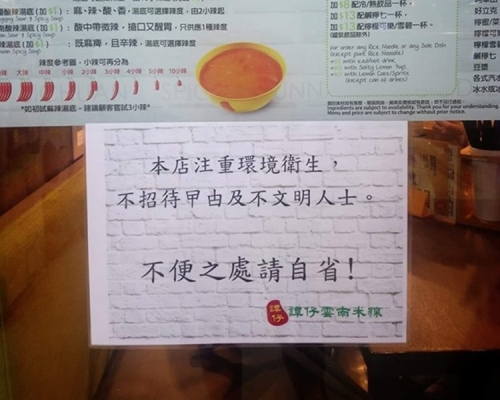 酸辣湯底(加$1)：
麻、辣、酸、香，湯底可選擇辣度，由2小辣起
酸中帶微辣，搶口又醒胃，只供應1種辣度
既麻痺，且辛辣，湯底可選擇辣度
辣度參考圖，小辣可再分為
大辣 中辣 小辣 4小辣 3小辣 2小辣 1小辣 5小辣 10小辣
*如初試麻辣湯底，建議顧客嘗試3小辣*
加$8配冷/熱飲品一杯，
加$13配鹹檸七一杯，
加$13配檸檬可樂/雪碧一杯。
For order any Rice Noodle or any Side Dish
(except pure Rice Noodle)
+$8 with Hot/Cold drink,
+$13 with Salty Lemon 7up,
+$13 with Lemon Coke/Sprite
(except can of drinks)
Ingredients are subject to availability. Thank you for your understanding.
Menu and price are subject to change without prior notice.
好立克
檸茶
檸水
豆漿
各式
冰水或
本店注重環境衛生，
不招待曱甴及不文明人士。
不便之處請自省!
譚仔
譚仔雲南米線